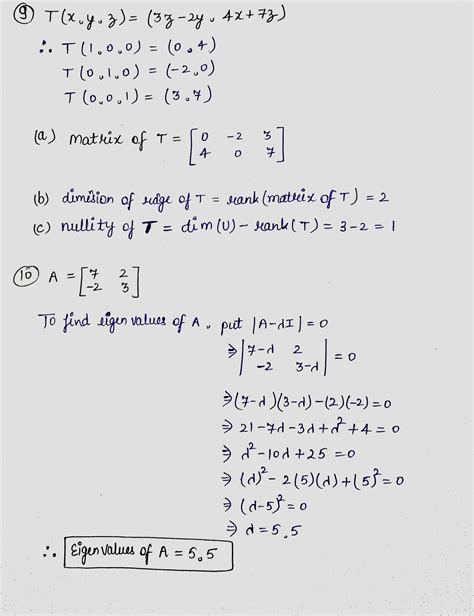 ⑨ T(x,y,z) = (3z-2y, 4x+7z)
∴ T(1,0,0) = (0,4)
T(0,1,0) = (-2,0)
T(0,0,1) = (3,7)
(a) matrix of T = [0 -2 3
4 0 7]
(b) dimision of ridge of T = rank(matrix of T) = 2
(c) nullity of T = dim(U) - rank(T) = 3-2 = 1
⑩ A = [7 2
-2 3]
To find eigen values of A, put |A-λI| = 0
⇒ |7-λ 2
-2 3-λ| = 0
⇒ (7-λ)(3-λ)-(2)(-2) = 0
⇒ 21-7λ-3λ+λ²+4 = 0
⇒ λ²-10λ+25 = 0
⇒ (λ)²-2(5)(λ)+(5)² = 0
⇒ (λ-5)² = 0
⇒ λ = 5,5
∴ Eigen values of A = 5,5